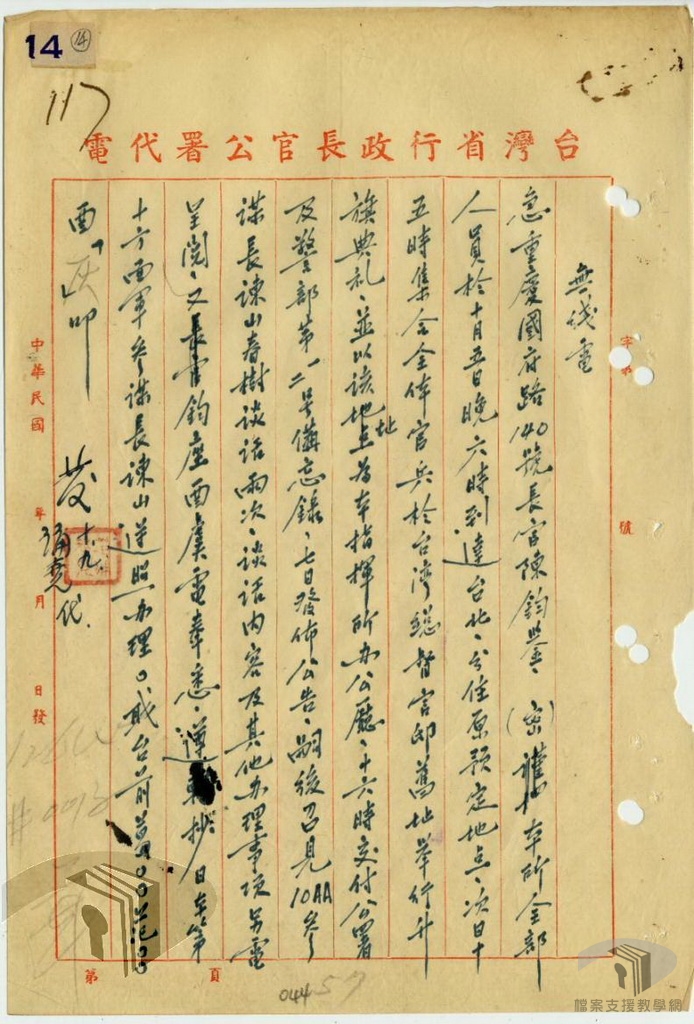 14 ⑭
117
台灣省行政長官公署代電
字第 號
無綫電
急重慶國府路140號長官陳鈞鑒、(密)謹本所全部
人員於十月五日晚六時到達台北、分住原預定地点、次日十
五時集合全体官兵於台湾總督官邸舊址舉行升
旗典礼、並以該地址為本指揮所办公廳、十六時交付公署
及警部第一二号備忘錄、七日發佈公告、嗣後召見10AA參
謀長諫山春樹談話兩次、談話內容及其他办理事項另電
呈閱、又長官鈞座酉虞電奉悉、遵抄日本第
十方面軍參謀長諫山遵照办理。職台前葛〇〇范〇〇
酉「灰」叩
發 十、九、
中華民國 年 月 日發
第 頁
04457
檔案支援教學網